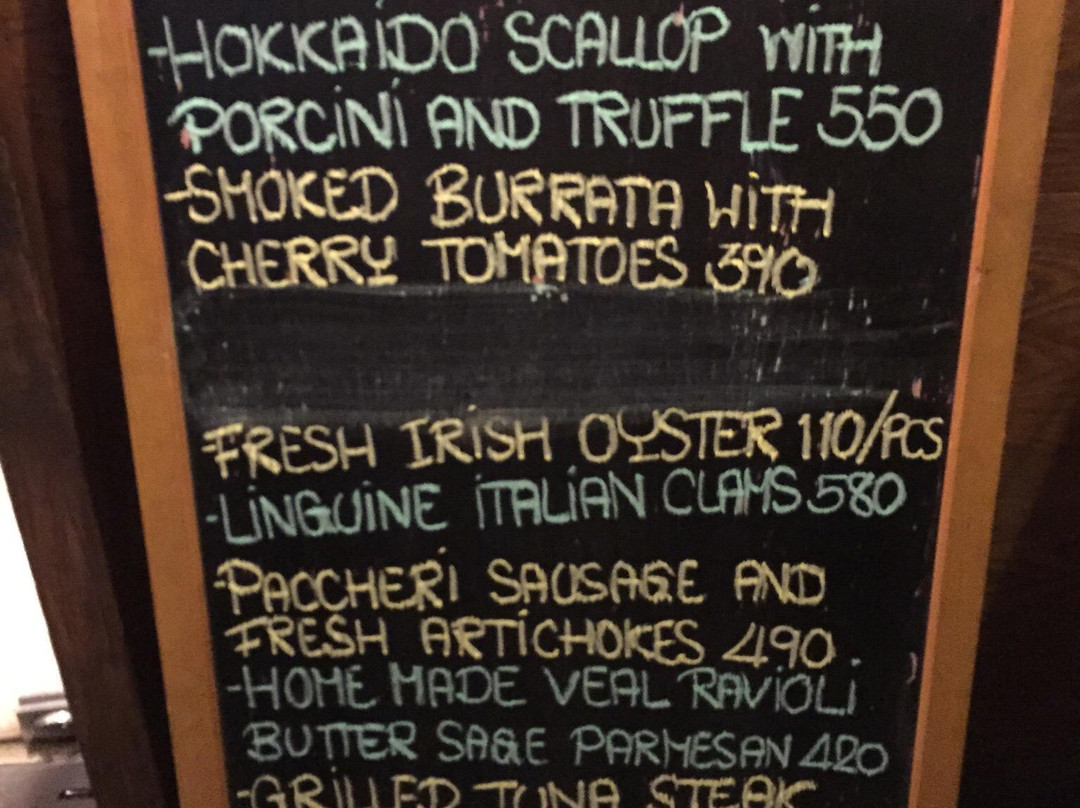 -HOKKAiDO SCALLOP WiTH
PORCiNi AND TRUFFLE 550
-SMOKED BURRATA WiTH
CHERRY TOMATOES 390
-FRESH IRiSH OYSTER 110/PCS
-LiNGUiNE iTALiAN CLAMS 580
-PACCHERi SAUSAGE AND
FRESH ARTiCHOKES 490
-HOME MADE VEAL RAViOLi
BUTTER SAGE PARMESAN 420
-GRiLLED TUNA STEAK